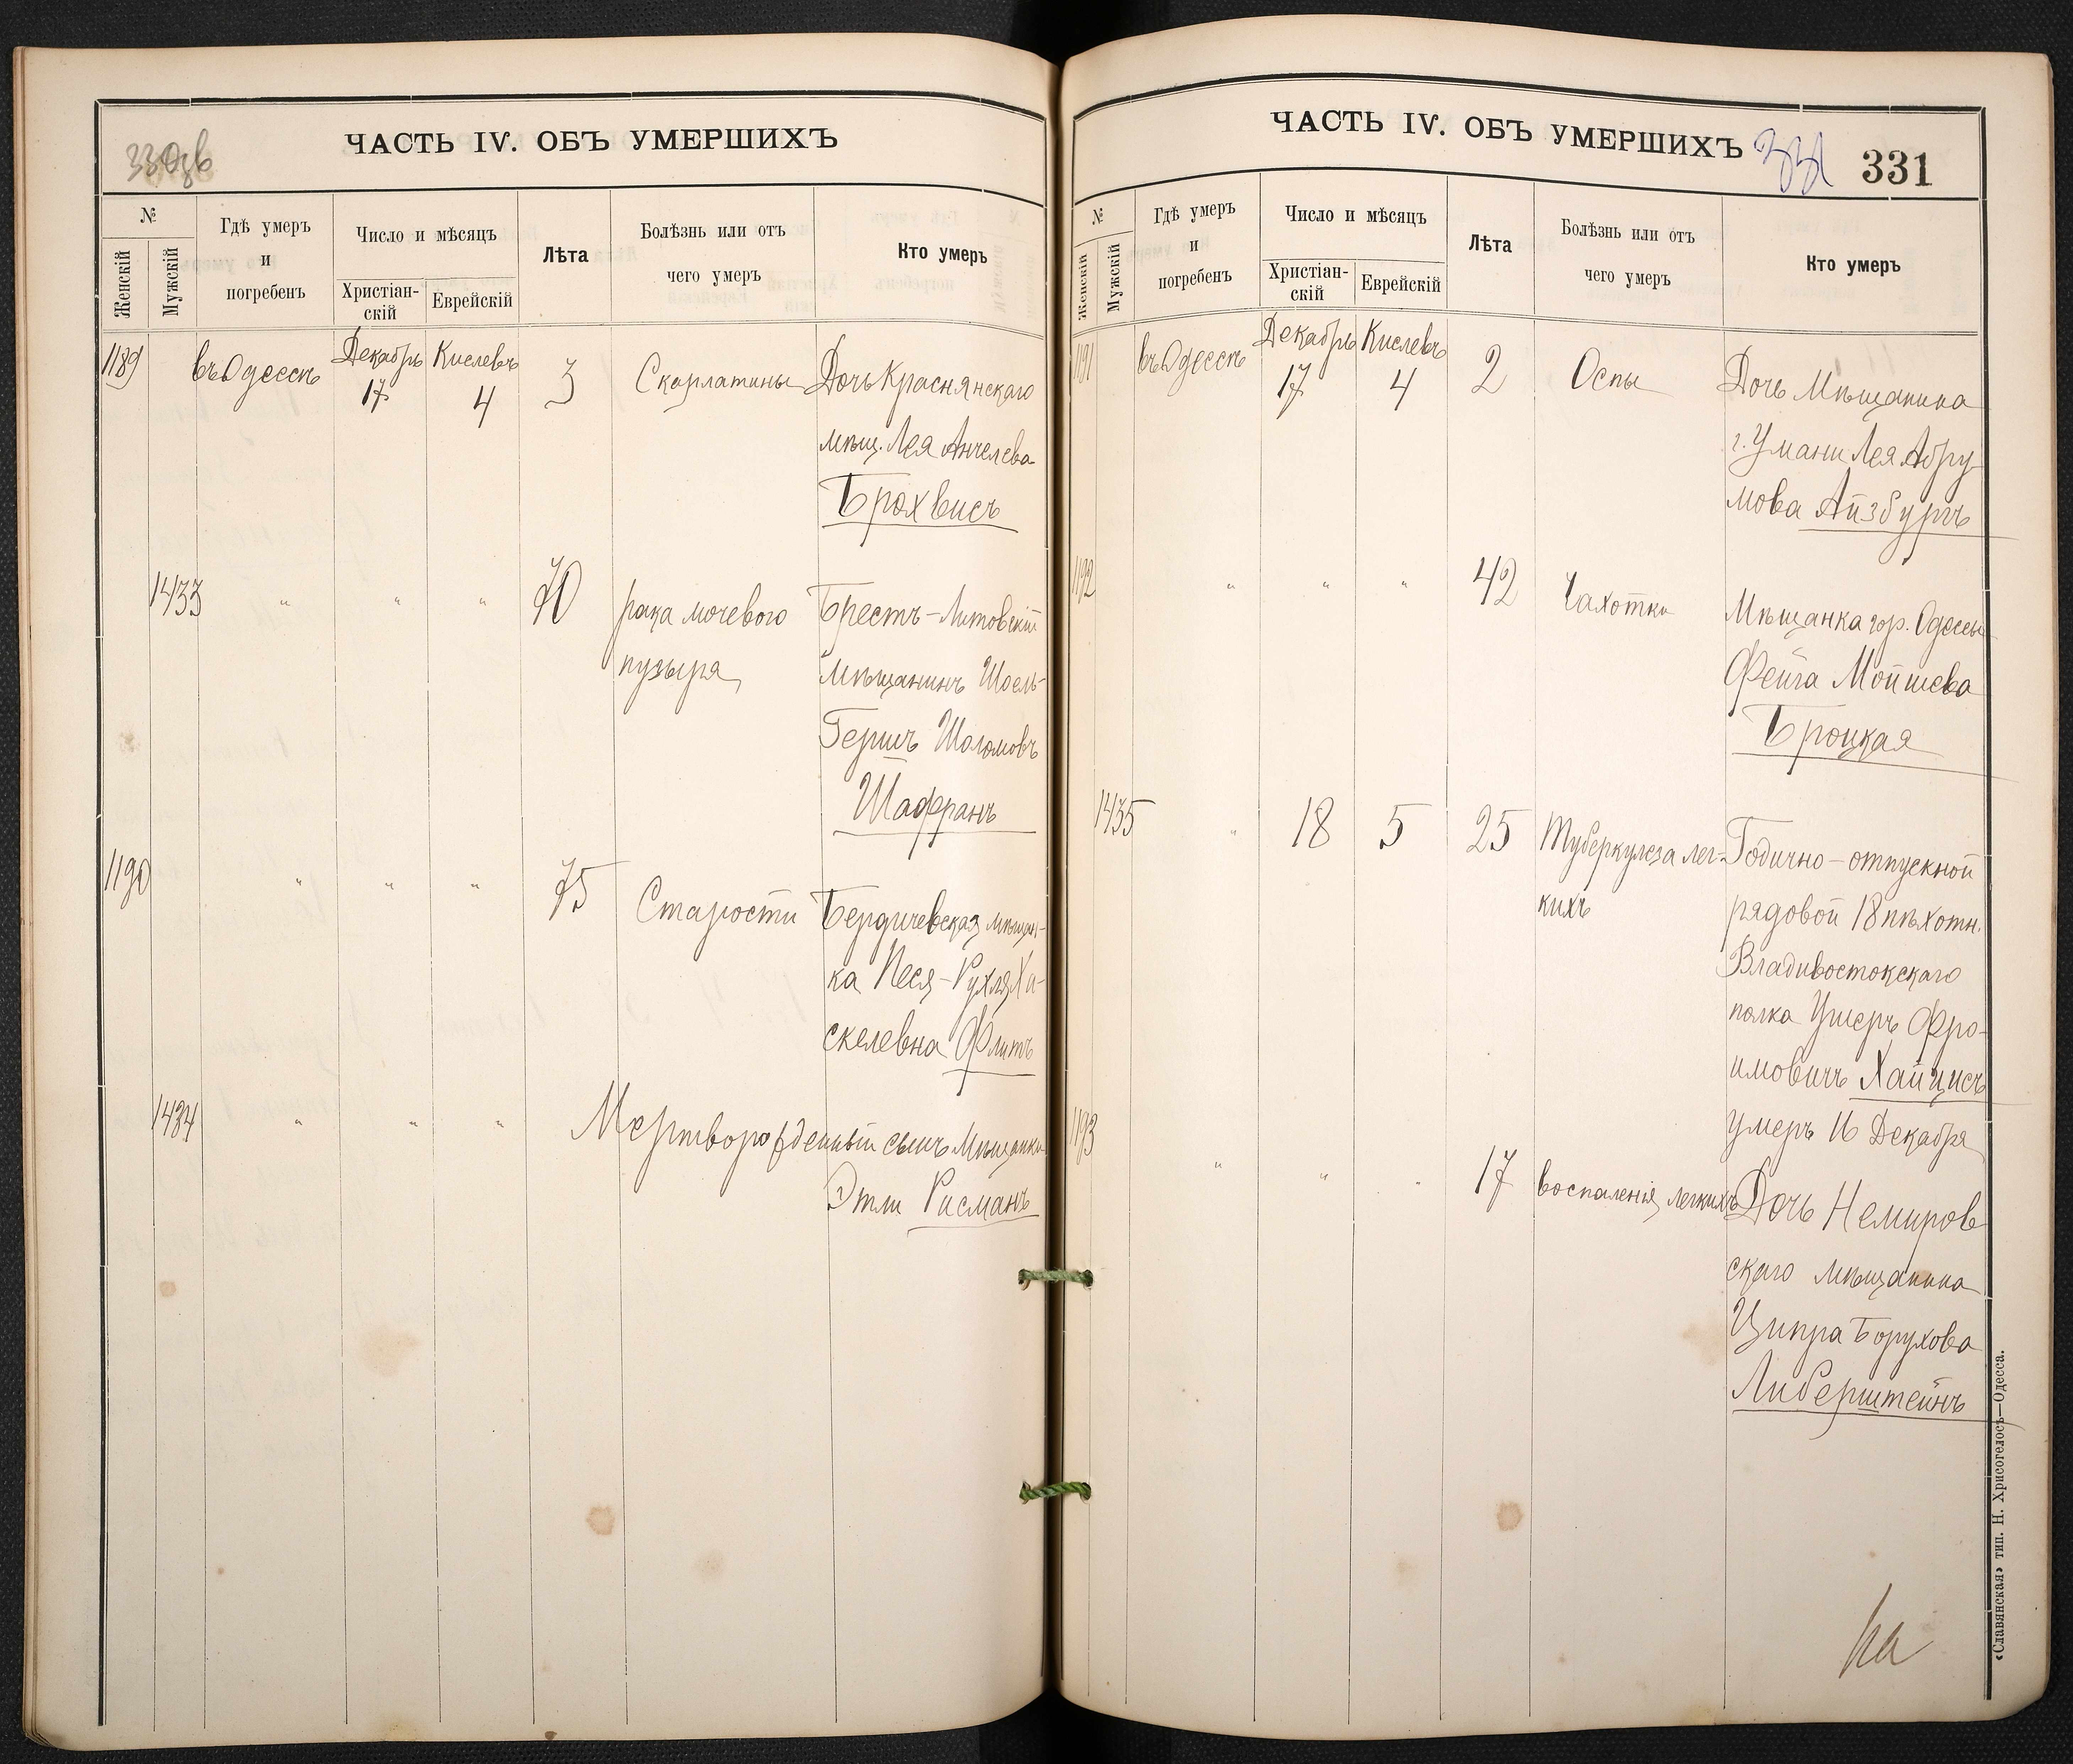 330 об
ЧАСТЬ IV. ОБЪ УМЕРШИХЪ
№
Женскій
Мужскій
Гдѣ умеръ
и
погребенъ
Число и мѣсяцъ
Христіан-
скій
Еврейскій
Лѣта
Болѣзнь или отъ
чего умеръ
Кто умеръ
1189 въ Одессѣ Декабрь Кислевъ
17 4 3 Скарлатины Дочь Краснянскаго
мѣщ. Лея Анчелева
Брохвисъ
1433 " " " 70 рака мочевого Брестъ-Литовскій
пузыря мѣщанинъ Шоель-
Гершъ Шоломовъ
Шафранъ
1190 " " " 75 Старости Бердичевская мѣщан-
ка Песя-Рухля Ха-
скелевна Флитъ
1434 " " " Мертворожденный сынъ Мѣщанки
Этли Рисманъ
ЧАСТЬ IV. ОБЪ УМЕРШИХЪ
331
331
№
Женскій
Мужскій
Гдѣ умеръ
и
погребенъ
Число и мѣсяцъ
Христіан-
скій
Еврейскій
Лѣта
Болѣзнь или отъ
чего умеръ
Кто умеръ
1191 въ Одессѣ Декабрь Кислевъ
17 4 2 Оспы Дочь Мѣщанина
г. Умани Лея Абру-
мова Айзбургъ
1192 " " " 42 Чахотки Мѣщанка гор. Одессы
Фейга Мойшева
Броцкая
1435 " 18 5 25 Туберкулеза лег- Годично-отпускной
кихъ рядовой 18 пѣхотн.
Владивостокскаго
полка Ушеръ Фро-
имовичъ Хайцисъ
умеръ 16 Декабря
1193 " " " 17 воспаленія легкихъ Дочь Немиров
скаго мѣщанина
Ципра Борухова
Либерштейнъ
«Славянская» тип. Н. Хрисогелосъ—Одесса.